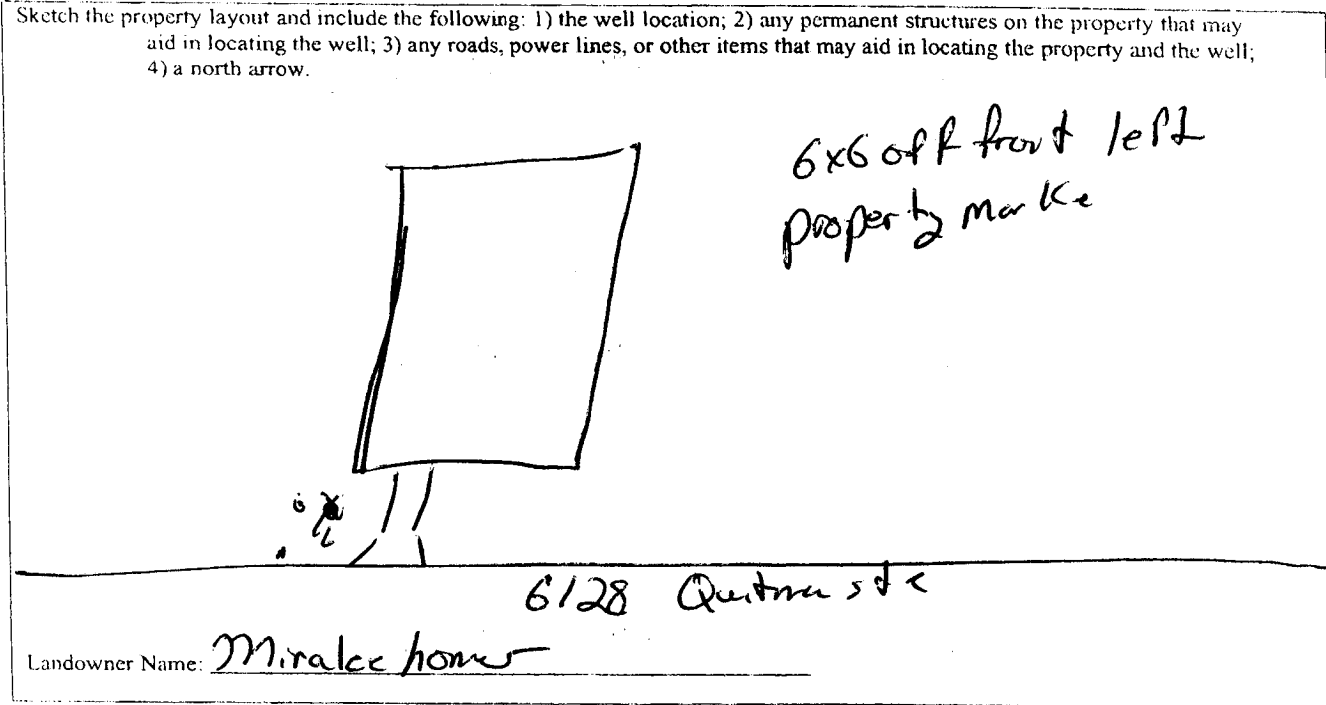 Sketch the property layout and include the following: 1) the well location; 2) any permanent structures on the property that may
aid in locating the well; 3) any roads, power lines, or other items that may aid in locating the property and the well;
4) a north arrow.
6x6 off front left
property marke
6128
Landowner Name: Miralee homes